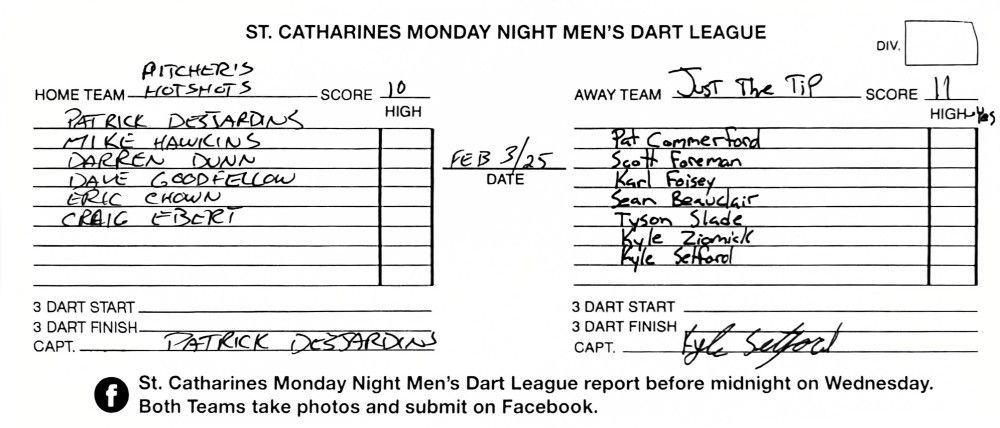 ST. CATHARINES MONDAY NIGHT MEN'S DART LEAGUE
DIV.
HOME TEAM PITCHER'S HOTSHOTS SCORE 10
AWAY TEAM Just The Tip SCORE 11
HIGH
HIGH Yes
PATRICK DESJARDINS
MIKE HAWKINS
DARREN DUNN
DAVE GOODFELLOW
ERIC CHOWN
CRAIG EBERT
FEB 3/25
DATE
Pat Commerford
Scott Foreman
Karl Foisey
Sean Beauclair
Tyson Slade
Kyle Ziomick
Kyle Setford
3 DART START
3 DART FINISH
CAPT. PATRICK DESJARDINS
3 DART START
3 DART FINISH
CAPT. Kyle Setford
f St. Catharines Monday Night Men's Dart League report before midnight on Wednesday.
Both Teams take photos and submit on Facebook.